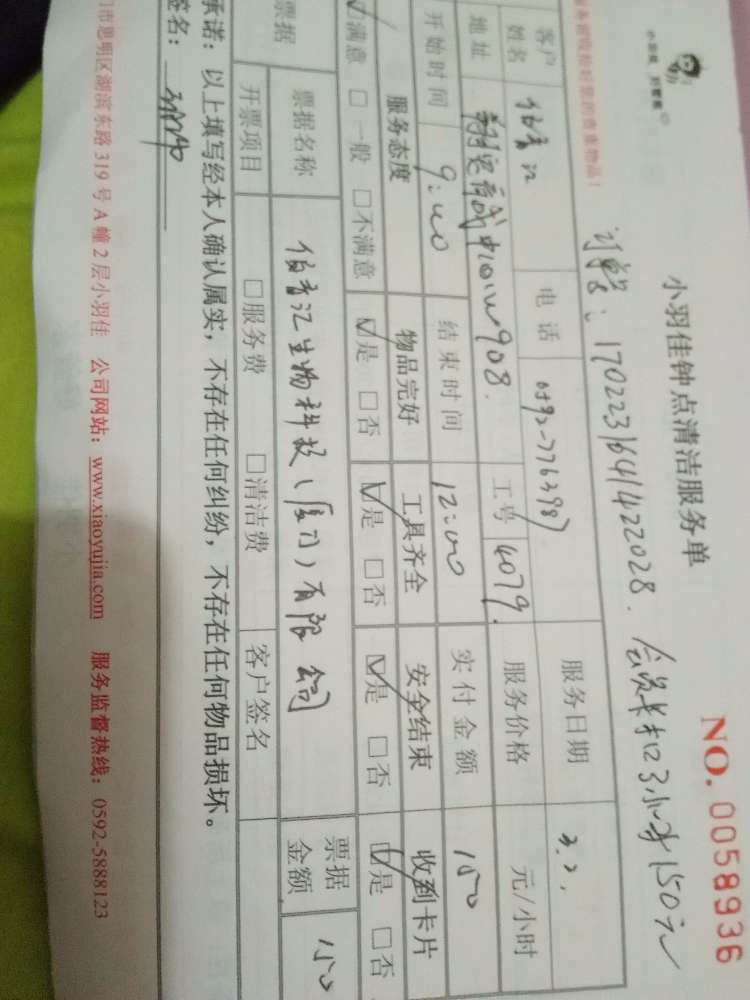 小羽佳 好管家
小羽佳钟点清洁服务单
NO. 0058936
订单号：1702231641422028. 会员卡扣3小时150元
客户姓名 佰香汇 电话 0592-7763987 服务日期 3.2.
地址 908. 工号 4079. 服务价格 元/小时
开始时间 9:00 结束时间 12:00 实付金额 150
服务态度 物品完好 工具齐全 安全结束 收到卡片
☑满意 □一般 □不满意 ☑是 □否 ☑是 □否 ☑是 □否 ☑是 □否
票据 票据名称 佰香汇生物科技（厦门）有限公司 票据金额 150
开票项目 □服务费 □清洁费 客户签名
承诺：以上填写经本人确认属实，不存在任何纠纷，不存在任何物品损坏。
签名：
门市思明区湖滨东路319号A幢2层小羽佳 公司网站：www.xiaoyujia.com 服务监督热线：0592-5888123